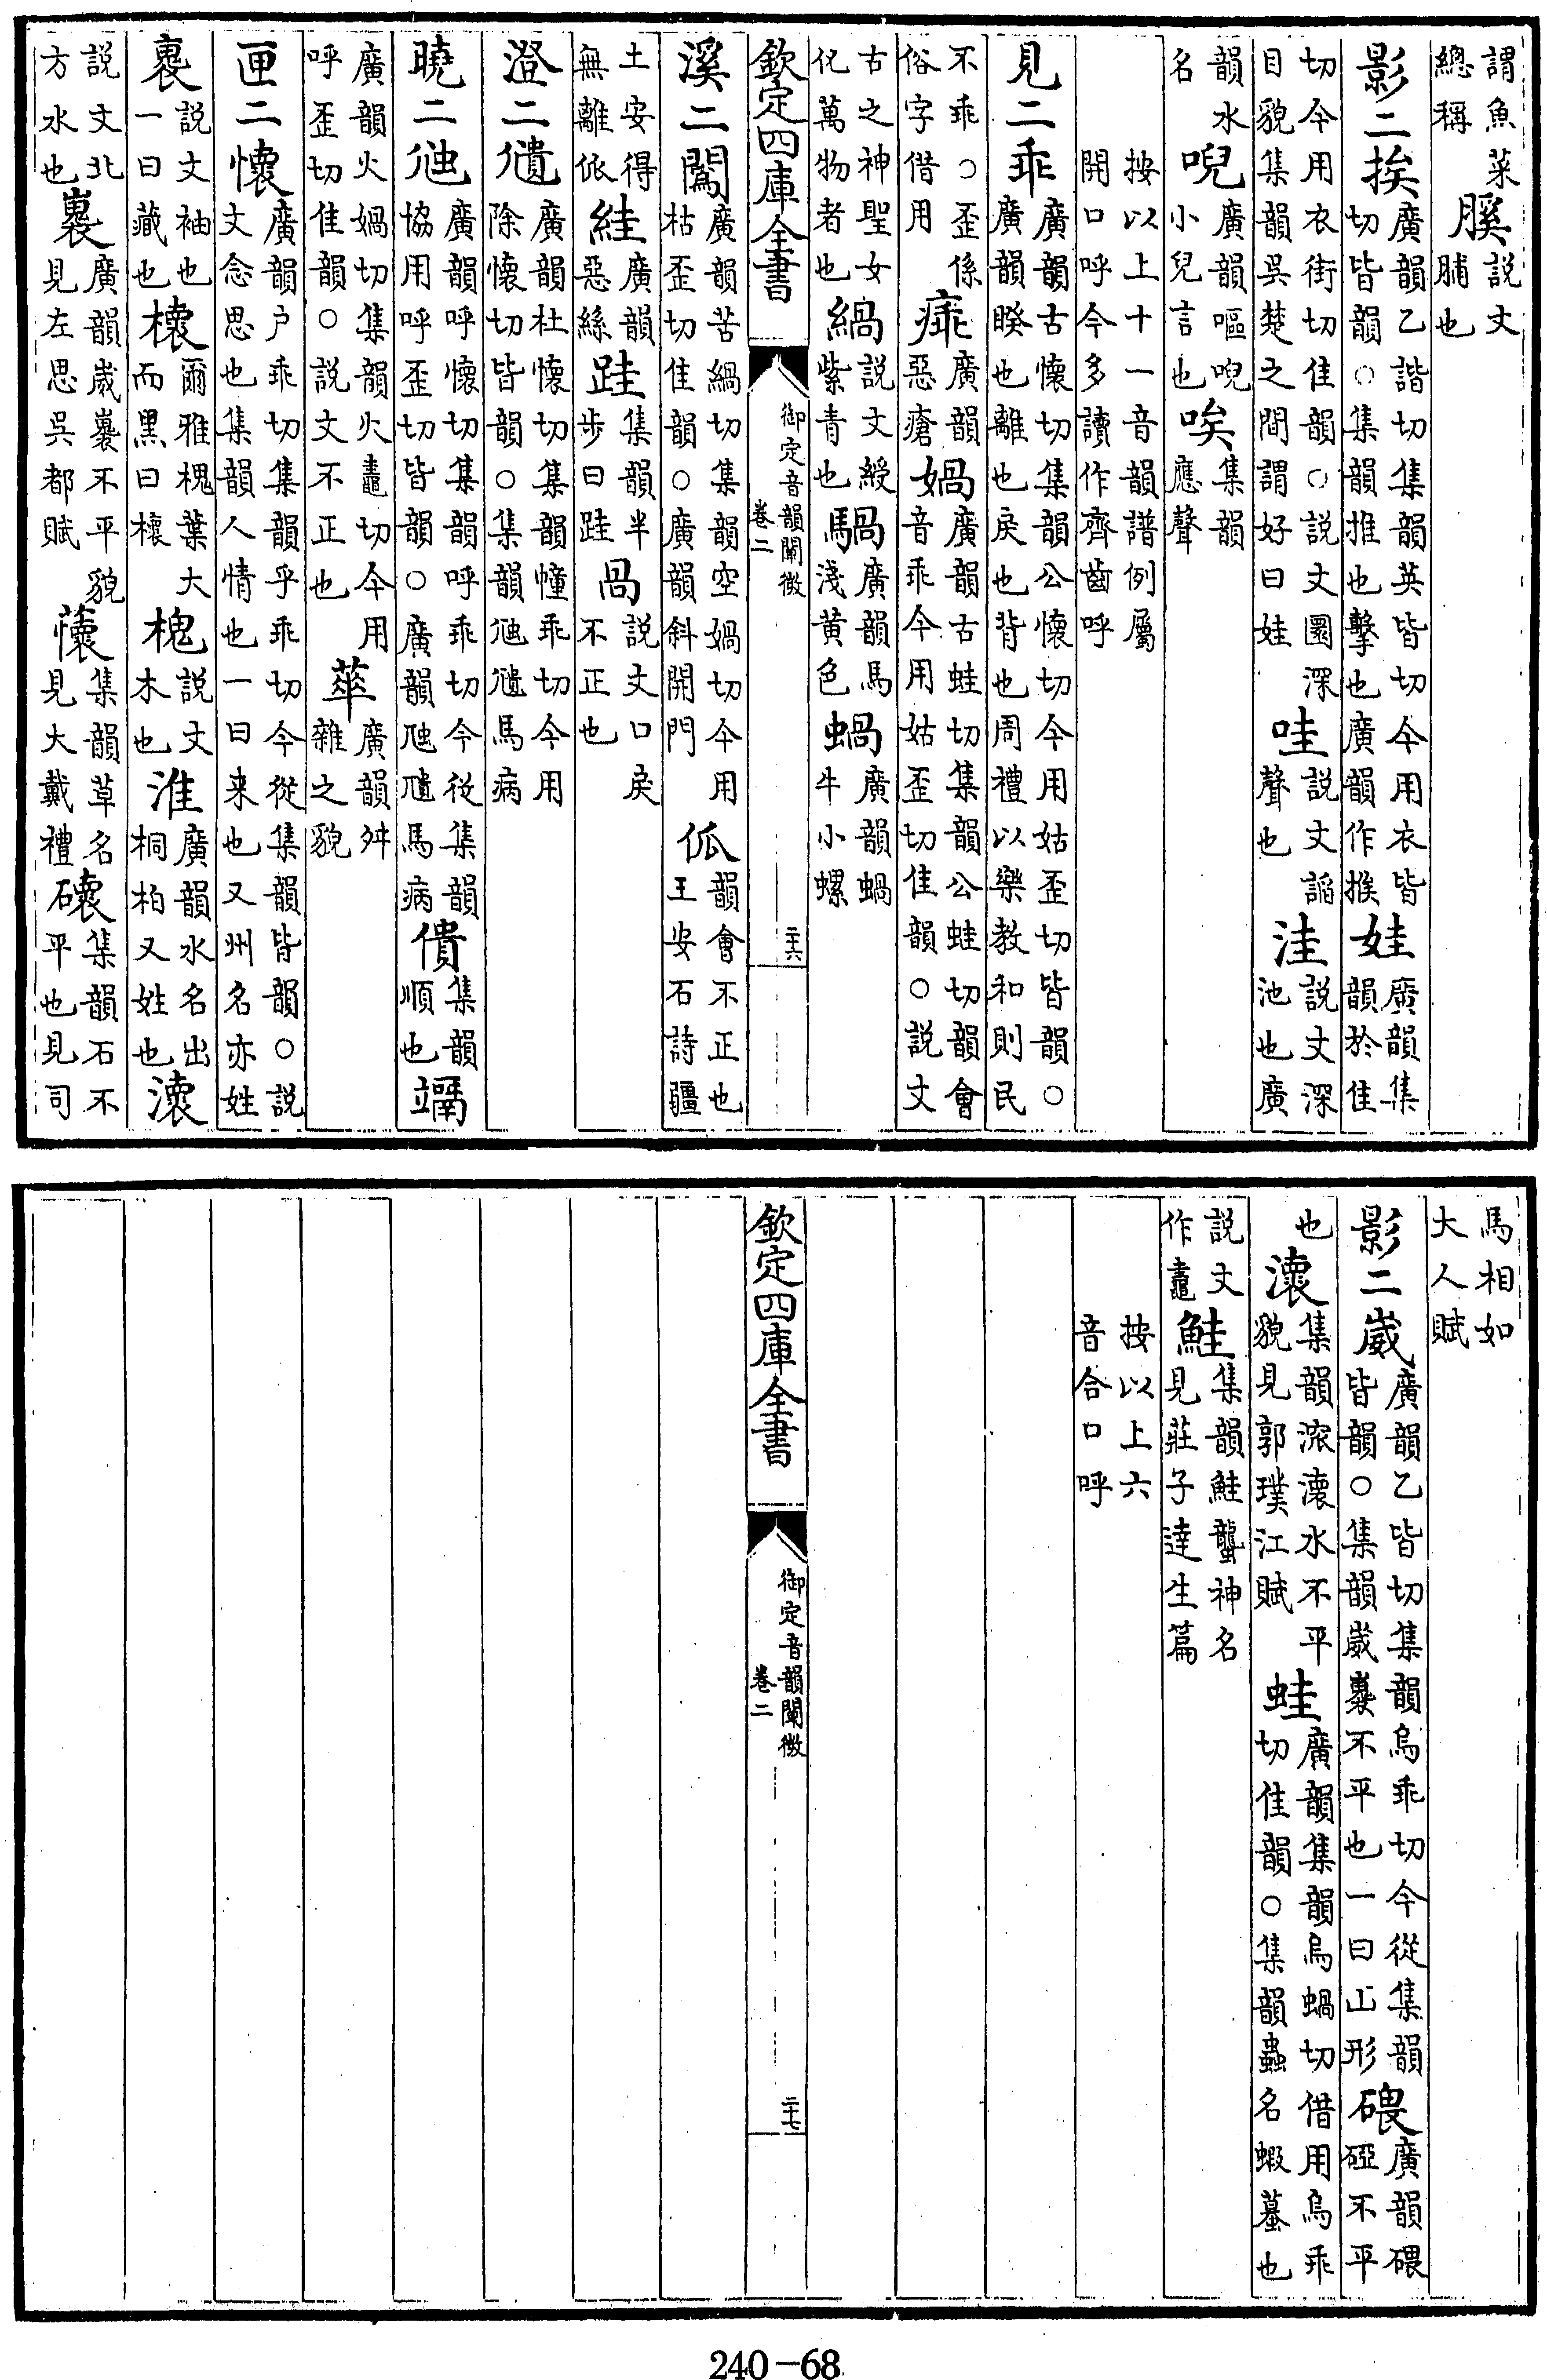 謂魚菜總稱膎説文脯也
影二挨廣韻乙諧切集韻英皆切今用衣皆切皆韻○集韻推也擊也廣韻作㨒娃廣韻集韻於佳
切今用衣街切佳韻○説文圜深目貌集韻吳楚之間謂好曰娃哇説文謟聲也洼説文深池也廣
韻水名唲廣韻嘔唲小兒言也唉集韻應聲
按以上十一音韻譜例屬開口呼今多讀作齊齒呼
見二乖廣韻古懷切集韻公懷切今用姑歪切皆韻○廣韻睽也離也戾也背也周禮以樂教和則民
不乖○歪係俗字借用㾩廣韻惡瘡媧廣韻古蛙切集韻公蛙切韻會音乖今用姑歪切佳韻○説文
古之神聖女化萬物者也緺説文綬紫青也騧廣韻馬淺黃色蝸廣韻蝸牛小螺
欽定四庫全書 御定音韻闡微 卷二 二十六
溪二闖廣韻苦緺切集韻空媧切今用枯歪切佳韻○廣韻斜開門㧓韻會不正也王安石詩疆
土安得無離㧓絓廣韻惡絲跬集韻半步曰跬咼説文口戾不正也
澄二㔼廣韻杜懷切集韻幢乖切今用除懷切皆韻○集韻尵㔼馬病
曉二尵廣韻呼懷切集韻呼乖切今從集韻協用呼歪切皆韻○廣韻尵㔼馬病僓集韻順也竵
廣韻火媧切集韻火鼃切今用呼歪切佳韻○説文不正也華廣韻舛雜之貌
匣二懷廣韻户乖切集韻乎乖切今從集韻皆韻○説文念思也集韻人情也一曰来也又州名亦姓
褱説文袖也一曰藏也櫰爾雅槐葉大而黑曰櫰槐説文木也淮廣韻水名出桐柏又姓也瀤
説文北方水也㠢廣韻崴㠢不平貌見左思吳都賦蘹集韻草名見大戴禮𥗪集韻石不平也見司
馬相如大人賦
影二崴廣韻乙皆切集韻烏乖切今從集韻皆韻○集韻崴㠢不平也一曰山形碨廣韻碨磑不平
也瀤集韻溾瀤水不平貌見郭璞江賦蛙廣韻集韻烏蝸切借用烏乖切佳韻○集韻蟲名蝦蟇也
説文作鼃鮭集韻鮭蠪神名見莊子達生篇
按以上六音合口呼
欽定四庫全書 御定音韻闡微 卷二 二十七
240-68